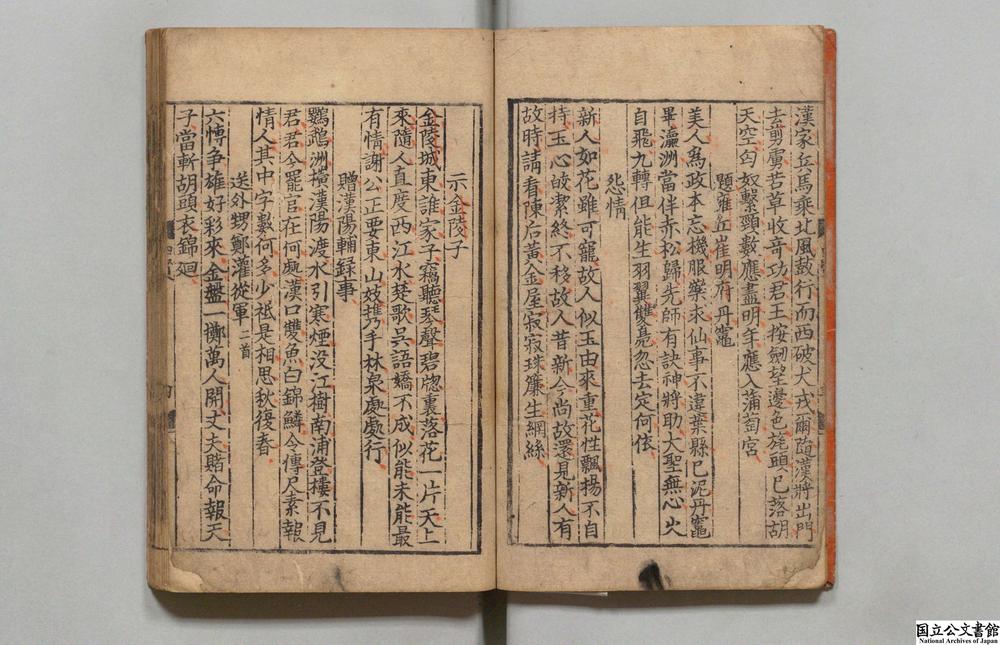 漢家兵馬乘北風鼓行而西破犬戎爾隨漢將出門
去剪虜若草收奇功君王按劒望邊色旄頭已落胡
天空匈奴繫頸數應盡明年應入蒲萄宮
題雍丘崔明府丹竈
美人為政本忘機服藥求仙事不違葉縣已泥丹竈
畢瀛洲當伴赤松歸先師有訣神將助大聖無心火
自飛九轉但能生羽翼雙鳧忽去定何依
怨情
新人如花雖可寵故人似玉由來重花性飄揚不自
持玉心皎潔終不移故人昔新今尚故還見新人有
故時請看陳后黃金屋寂寂珠簾生網絲
示金陵子
金陵城東誰家子竊聽琴聲碧牕裏落花一片天上
來隨人直度西江水楚歌吳語嬌不成似能未能最
有情謝公正要東山妓攜手林泉處處行
贈漢陽輔録事
鸚鵡洲橫漢陽渡水引寒煙没江樹南浦登樓不見
君君今罷官在何處漢口雙魚白錦鱗令傳尺素報
情人其中字數何多少祗是相思秋復春
送外甥鄭灌從軍 二首
六博争雄好彩來金盤一擲萬人開丈夫賭命報天
子當斬胡頭衣錦廻
国立公文書館
National Archives of Japan